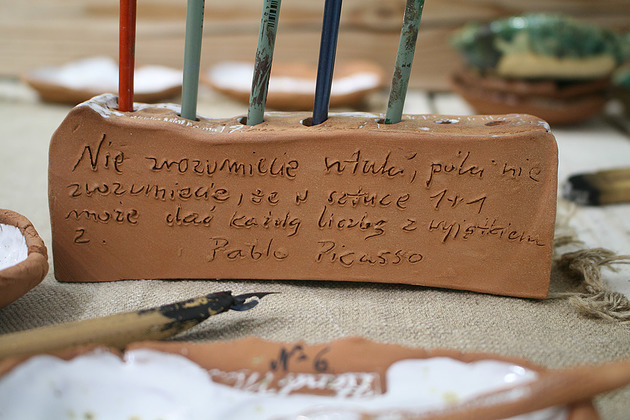 Nie zrozumiecie sztuki, póki nie
zrozumiecie, że w sztuce 1+1
może dać każdą liczbę z wyjątkiem
2.
Pablo Picasso
No 6